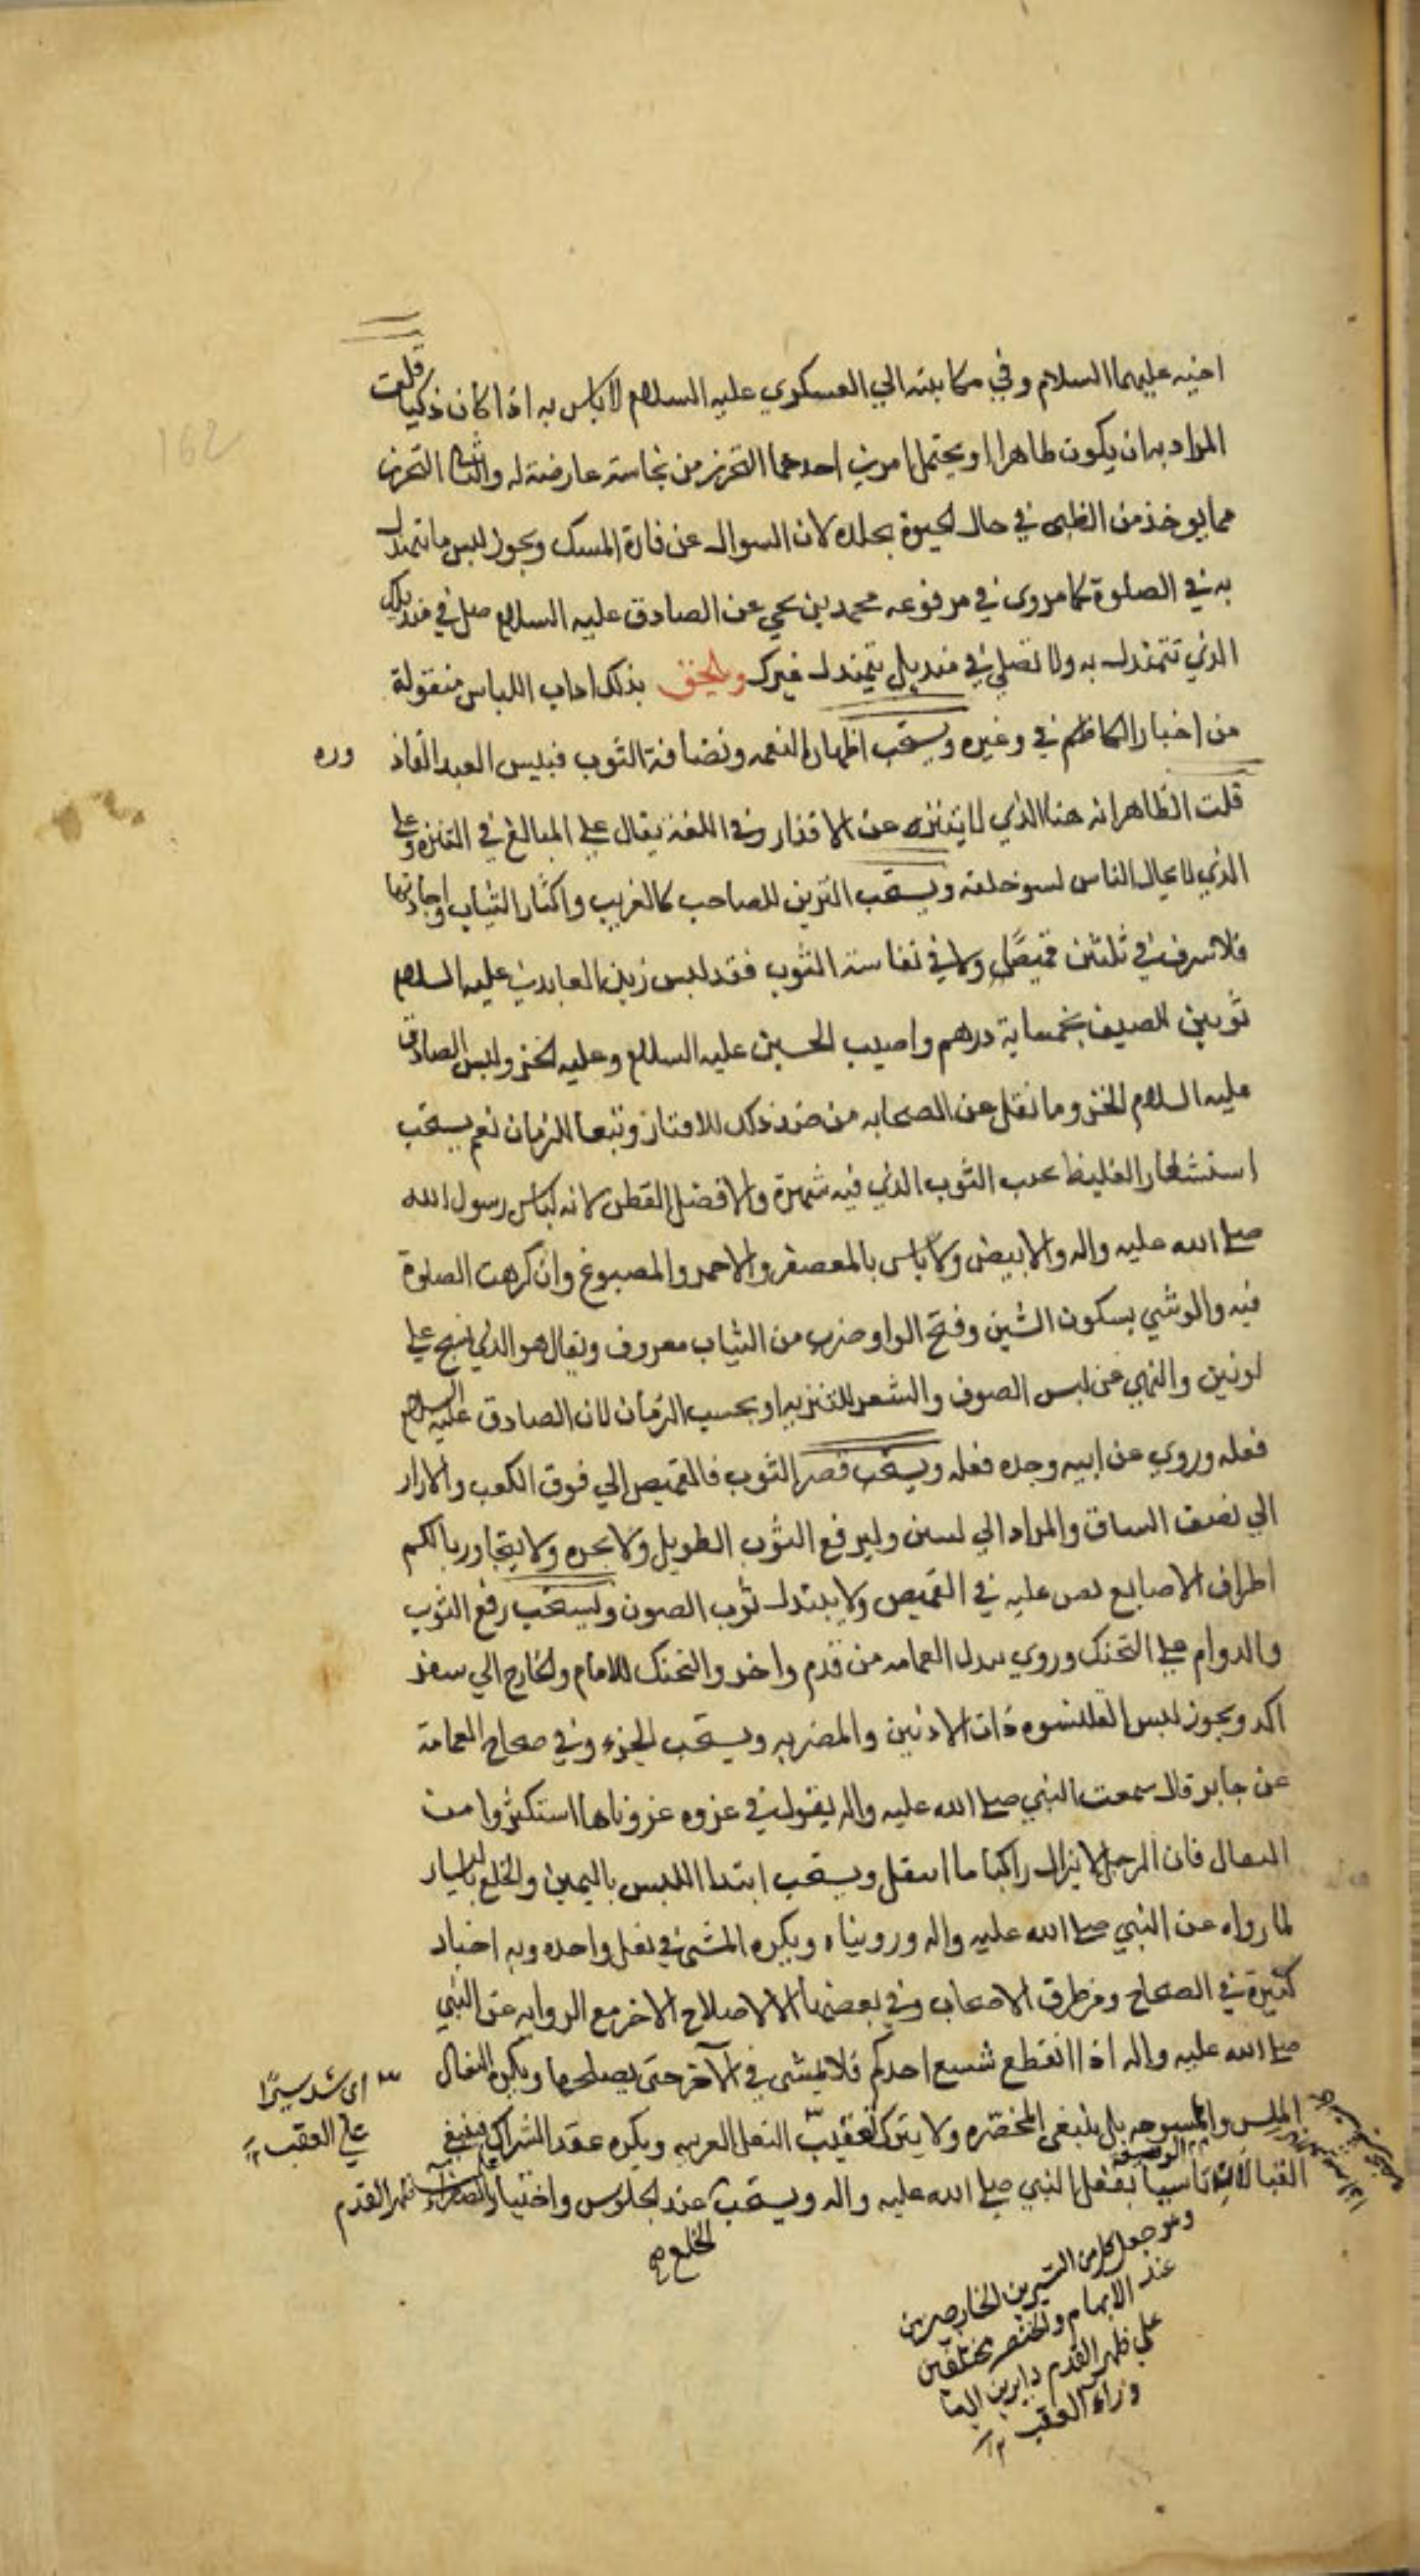 162
اخيه عليهما السلام وفي مكاتبته الي العسكري عليه السلام لا باس به اذا كان ذكيا قلت
المراد به ان يكون طاهرا ويحتمل امرين احدهما التحرز من نجاسته عارضته له والثاني التحرز
مما يوخذ من الظبي في حال الحيوة بجلده لان السوال عن فارة المسك ويجوز لبس ما تمندل
به في الصلوة كما روى في مرفوعه محمد بن يحيي عن الصادق عليه السلام صل في منديلك
الذي تتمندل به ولا تصلي في منديل يتمندل غيرك ويلحق بذلك اداب اللباس منقولة
من اخبار الكاظم في وغيره ويستحب اظهار النعمه ونضافة الثوب فبئس العبد القاذ ورة
قلت الظاهر انه هنا الذي لا يتنزه عن الاقذار وفي اللغة يقال علي المبالغ في التنزه وعلي
الذي لا يخال الناس لسو خلقه ويستحب التزين للصاحب كالغريب واكثار الثياب واجادتها
فلا سرف في ثلثين قميصًا ولا في نفاسة الثوب فقد لبس زين العابدين عليه السلام
ثوبين للصيف بخمسماية درهم واصيب الحسين عليه السلام وعليه الخز ولبس الصادق
عليه السلام الخز وما نقل عن الصحابه من ضد ذلك للاقتار وتبعا للزمان نعم يستحب
استشعار الغليظ تحت الثوب الذي فيه شهرة والافضل القطن لانه لباس رسول الله
صلي الله عليه واله والابيض ولا باس بالمعصفر والاحمر والمصبوغ وان كرهت الصلوة
فيه والوشي بسكون الشين وفتح الواو ضرب من الثياب معروف ويقال هو الذي نسج علي
لونين والنهي عن لبس الصوف والشعر للتنزيه او بحسب الزمان لان الصادق عليه السلام
فعله وروي عن ابيه وجده فعله ويستحب قصر الثوب فالقميص الي فوق الكعب والازار
الي نصف الساق والرداء الي وليرفع الثوب الطويل ولا يجره ولا يتجاوز بالكم
اطراف الاصابع نص عليه في القميص ولا يبتذل ثوب الصون ويستحب رقع الثوب
والدوام علي التحنك وروي سدل العمامه من قدم واخر والتحنك للامام والخارج الي سفر
اكد ويجوز لبس القلنسوه ذات الاذنين والمضربه ويستحب وفي صحاح العامة
عن جابر قال سمعت النبي صلي الله عليه واله يقول في غزوه غزوناها استكثروا من
النعال فان الرجل لا يزال راكبا ما انتعل ويستحب ابتدا اللبس باليمين والخلع باليسار
لما رواه عن النبي صلي الله عليه واله ورويناه ويكره المشي في نعل واحده وبه اخبار
كثيرة في الصحاح ومن طرق الاصحاب وفي بعضها الا لاصلاح الاخر مع الروايه عن النبي
صلي الله عليه واله اذا انقطع شسع احدكم فلا يمشي في الآخر حتي يصلحها ويكره النعال
الملس والممسوحه بل ينبغي المخصّره ولا يترك تعقيب النعل العربيه ويكره عقد الشراك فينبغي
القبالان تاسيا بفعل النبي صلي الله عليه واله ويستحب عند الجلوس واختيار ظهر القدم
الخلع
اي شد سيرًا
علي العقب ١٢
وهو جعل كل من السيرين الخارجين
عند الابهام والخنصر مختلفين
علي ظهر القدم دايرين الي
وراء العقب ١٢